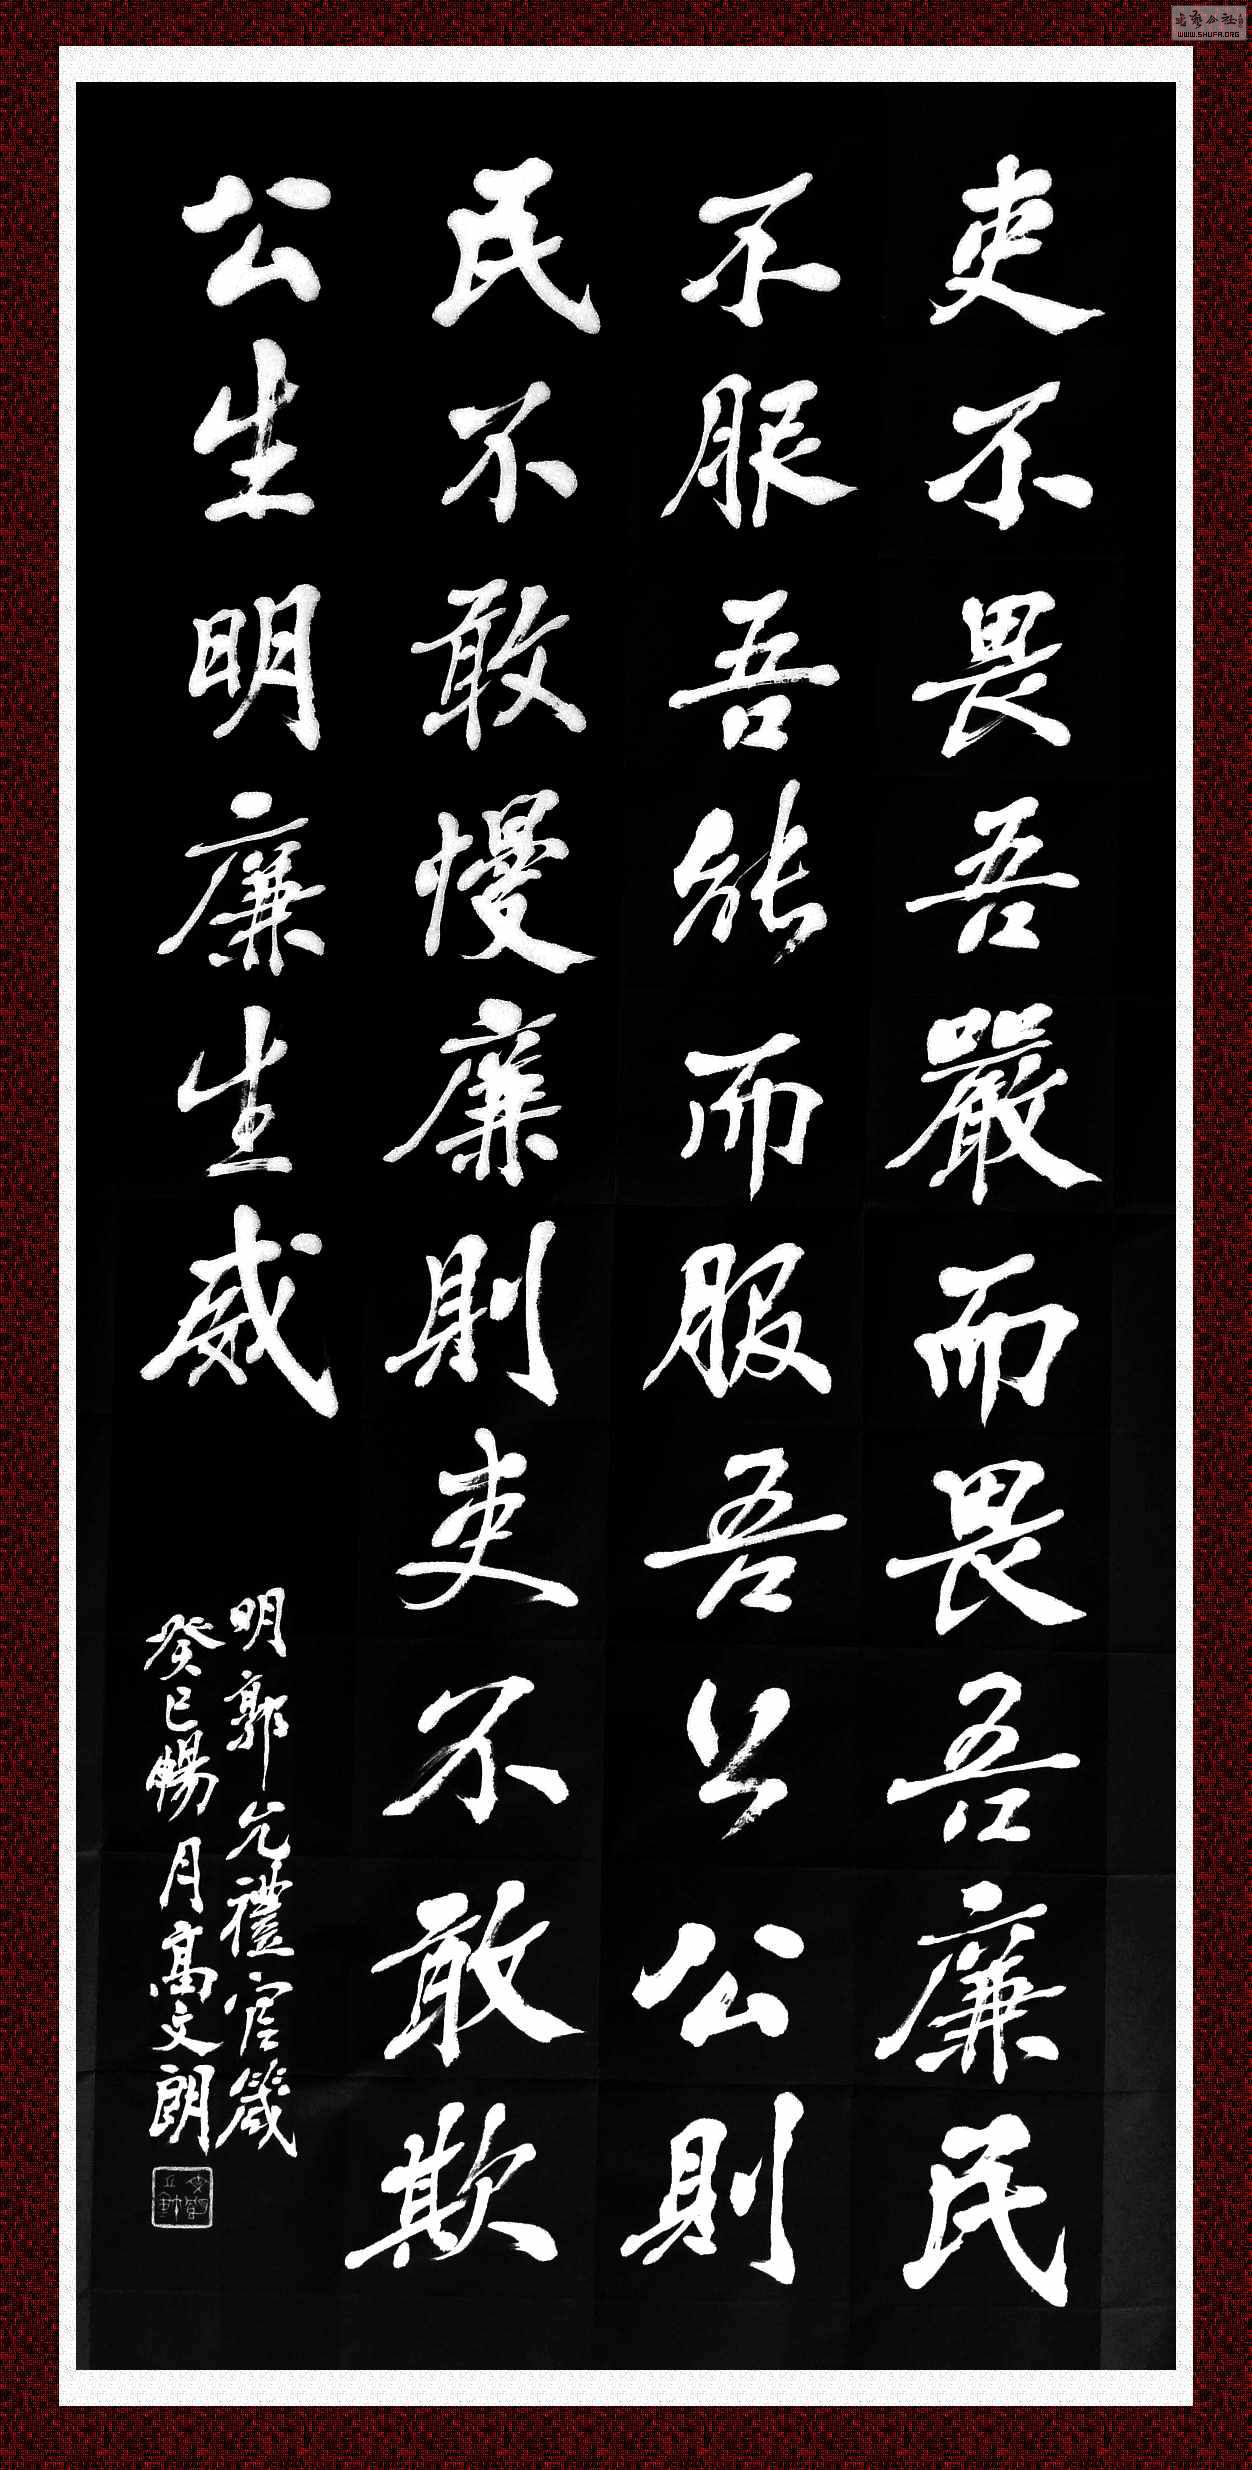 吏不畏吾嚴而畏吾廉民
不服吾能而服吾公公則
民不敢慢廉則吏不敢欺
公生明廉生威
明郭允禮官箴
癸巳暢月高文朗
WWW.SHUFA.ORG